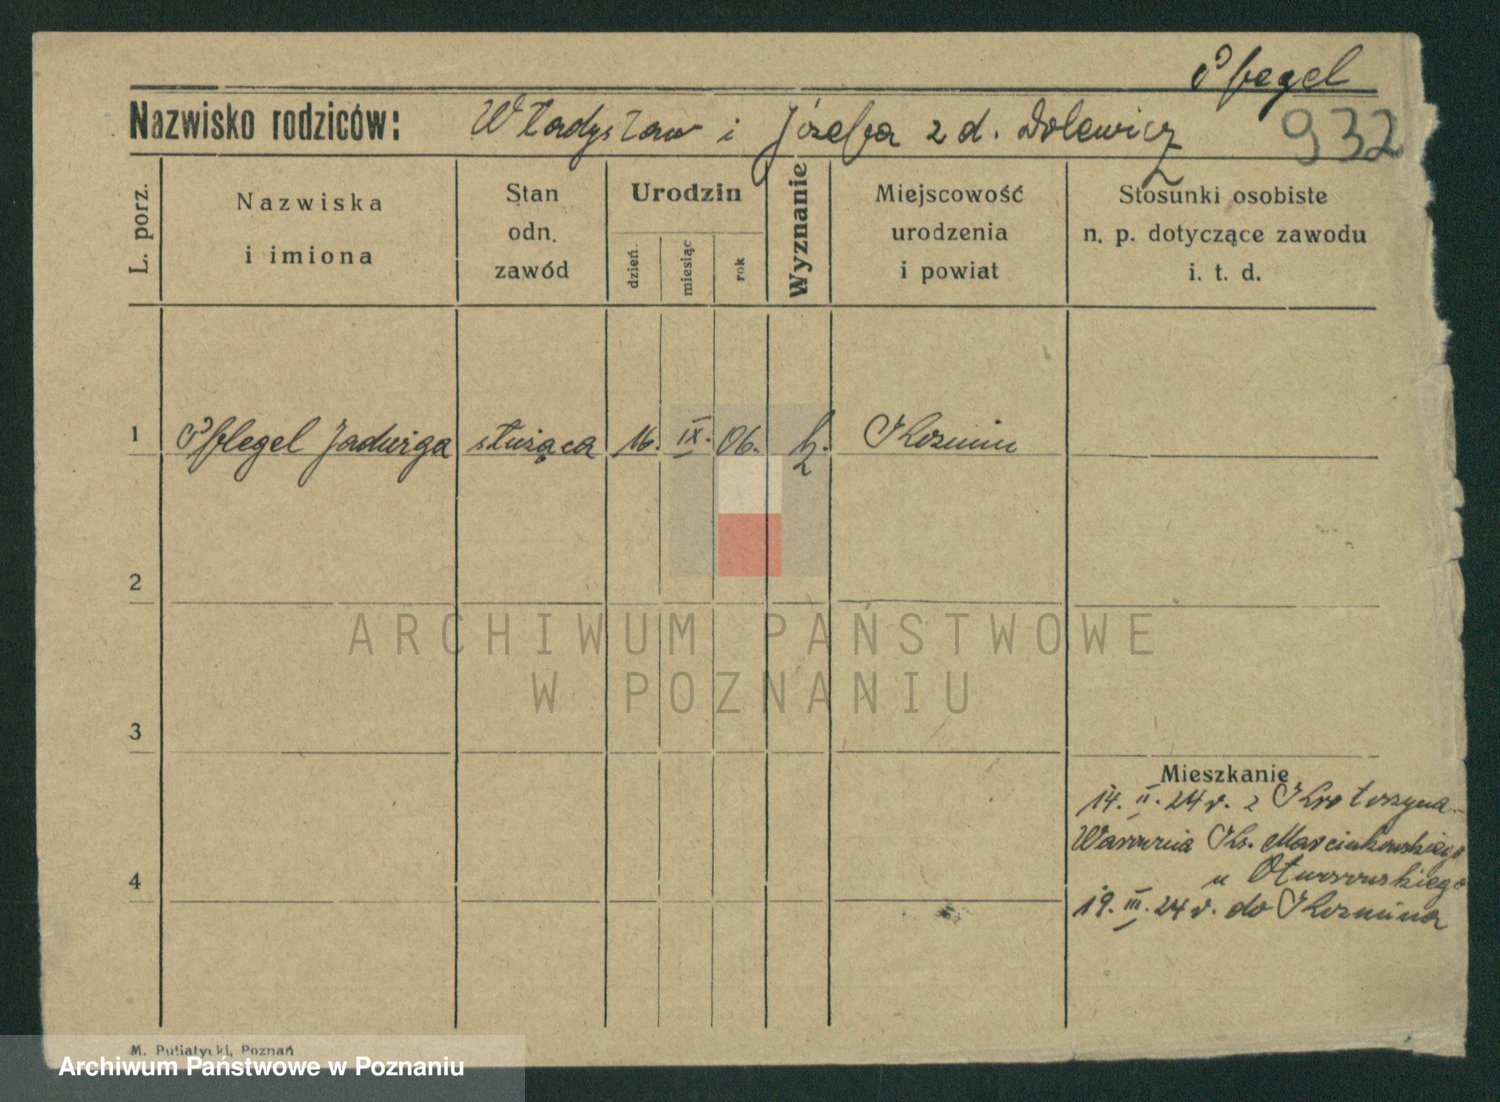 Pflegel
Nazwisko rodziców: Władysław i Józefa z d. Dolewicz 932
L. porz.
Nazwiska
i imiona
Stan
odn.
zawód
Urodzin
dzień.
miesiąc
rok
Wyznanie
Miejscowość
urodzenia
i powiat
Stosunki osobiste
n. p. dotyczące zawodu
i. t. d.
1 Pflegel Jadwiga służąca 16. IX. 06. k. Kozmin
2
3
4
Mieszkanie
14. II. 24 r. z Krotoszyna
Ks. Marcinkowskiego
u
19. III. 24 r. do Kozmina
M. Putiatycki, Poznań
ARCHIWUM PAŃSTWOWE
W POZNANIU
Archiwum Państwowe w Poznaniu